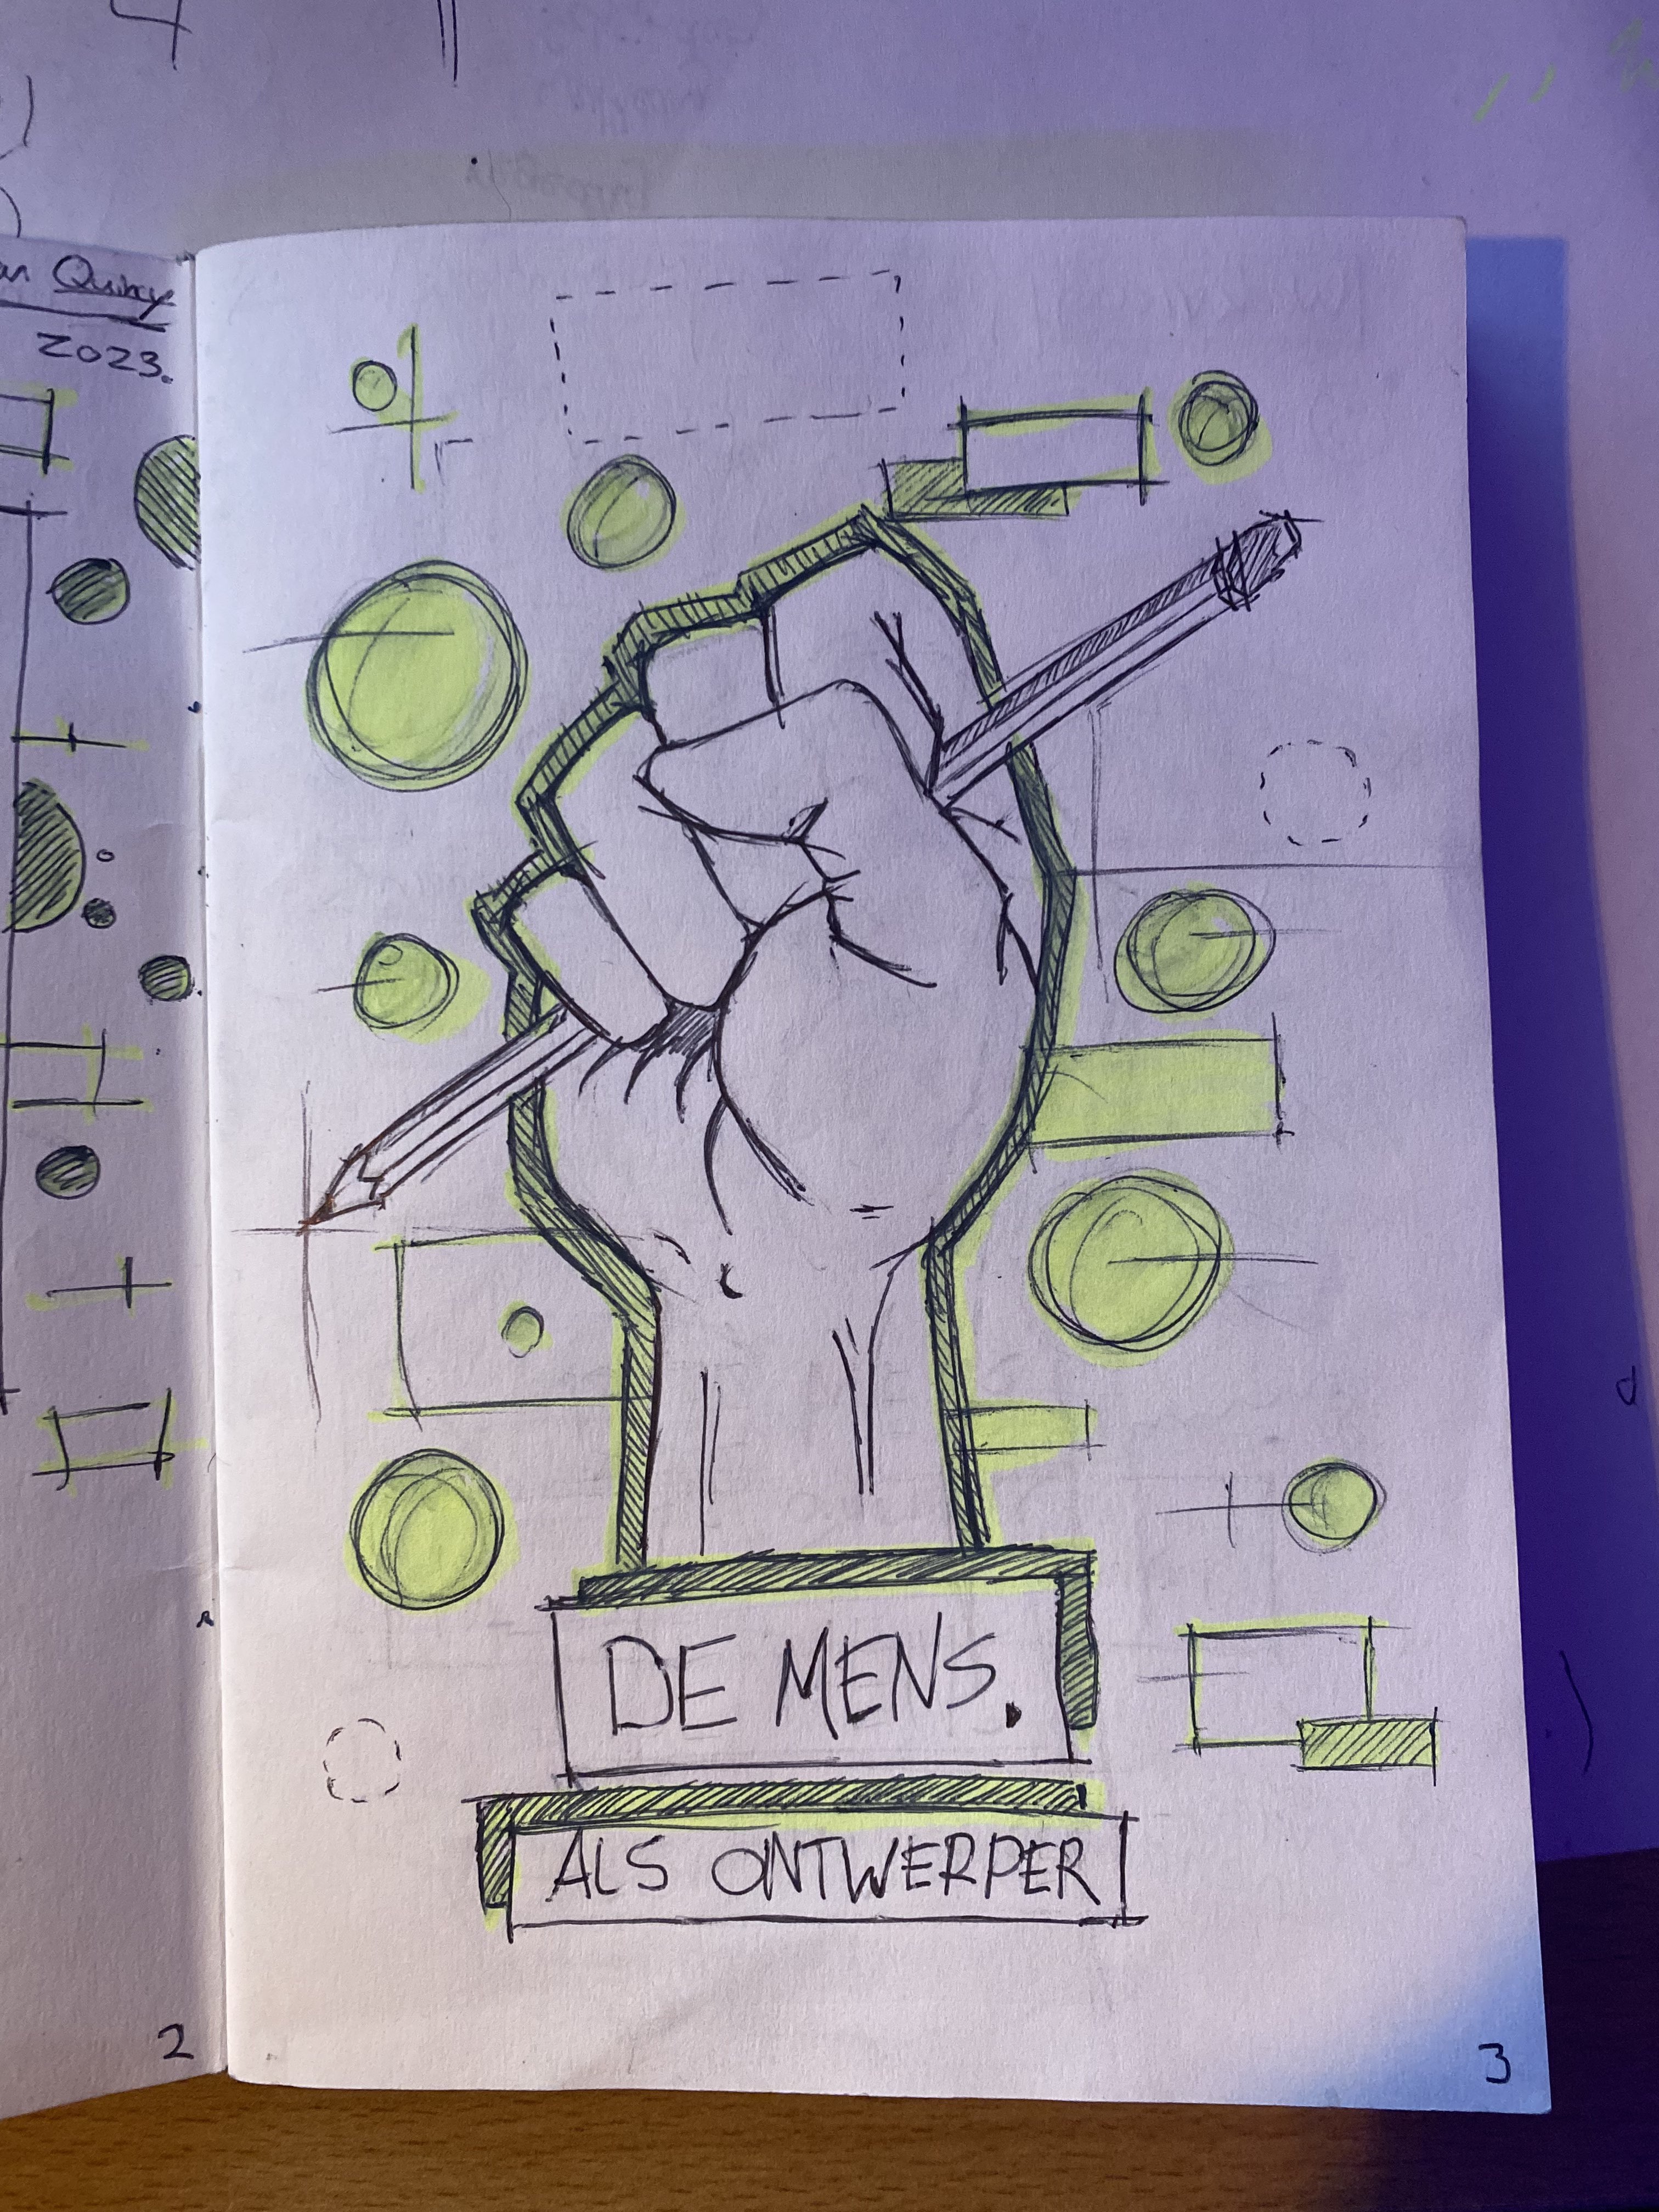 Quincy
2023.
DE MENS.
ALS ONTWERPER
2
3